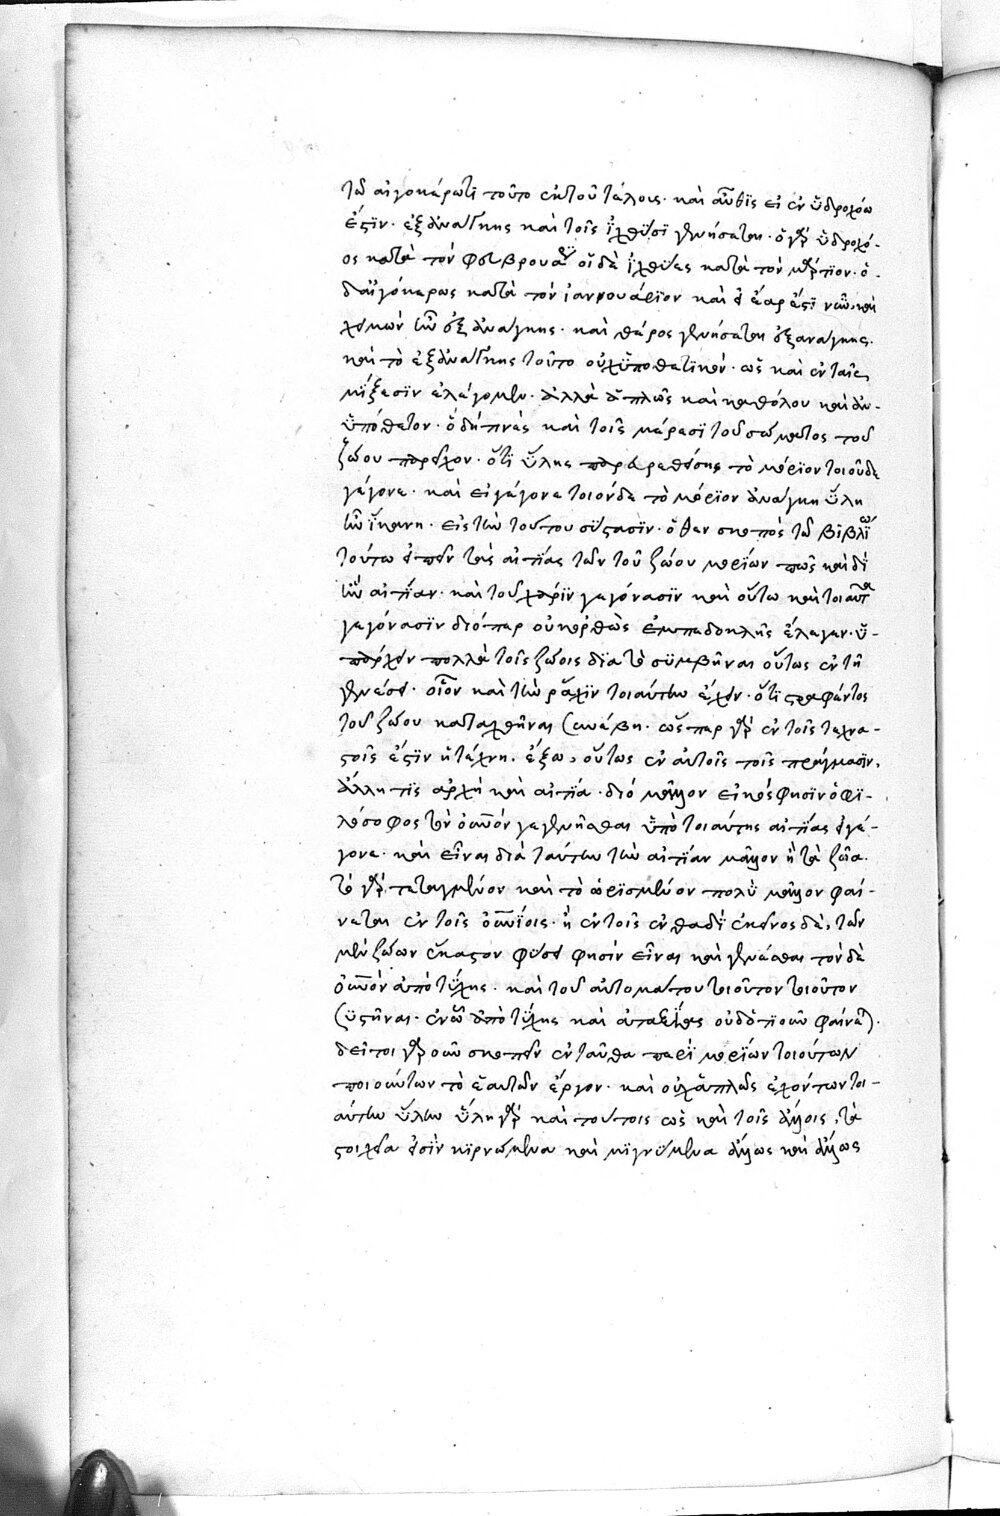 τῶ αἰγοκέρωτι τοῦτο ἐκ τοῦ τέλους· καὶ αὖθις εἰ ἐν ὑδροχόω
ἐστὶν· ἐξ ἀνάγκης καὶ τοῖς ἰχθύσι γενήσεται· ὁ γὰρ ὑδροχό-
ος κατὰ τὸν φευβρουάριον οἱ δὲ ἰχθύες κατὰ τὸν μάρτιον· ὁ
δ' αἰγόκερως κατὰ τὸν ἰαννουάριον καὶ εἰ ἔαρ ἐστὶ νῦν, καὶ
χειμὼν ἦν ἐξ ἀνάγκης· καὶ θέρος γενήσεται ἐξ ἀνάγκης·
καὶ τὸ ἐξ ἀνάγκης τοῦτο οὐχ ὑποθετικόν· ὡς καὶ ἐν ταῖς
μίξεσιν ἐλέγομεν· ἀλλὰ ἁπλῶς καὶ καθόλου καὶ ἀν-
υπόθετον· ὃ δή πως καὶ τοῖς μέρεσι τοῦ σώματος τοῦ
ζώου παρεῖχον· ὅτι ὕλης παρατεθείσης τὸ μόριον τοιοῦδε
γέγονε· καὶ εἰ γέγονε τοιόνδε τὸ μόριον ἀνάγκη ὕλη
ἦν ἱκανὴ· εἰς τὴν τούτου σύστασιν· ὅθεν σκοπὸς τῶ βιβλίω
τούτω εἰπεῖν τὰς αἰτίας τῶν τοῦ ζώου μορίων πῶς καὶ δι'
ἣν αἰτίαν· καὶ τοῦ χάριν γεγόνασιν καὶ οὕτω καὶ τοιαῦτα
γεγόνασιν διόπερ οὐκ ὀρθῶς ἐμπεδοκλῆς ἔλεγεν· ὑ-
πάρχειν πολλὰ τοῖς ζώοις διὰ τὸ συμβῆναι οὕτως ἐν τῆ
γενέσει· οἷον καὶ τὴν ῥάχιν τοιαύτην ἔχειν· ὅτι στραφέντος
τοῦ ζώου καταχθῆναι συνέβη· ὥσπερ γὰρ ἐν τοῖς τεχνα-
στοῖς ἐστὶν ἡ τέχνη· ἔξω, οὕτως ἐν αὐτοῖς τοῖς πράγμασιν,
ἄλλη τὶς ἀρχὴ καὶ αἰτία· διὸ μᾶλλον εἰκός φησὶν ὁ φι-
λόσοφος τὸν οὐρανὸν γεγενῆσθαι ὑπὸ τοιαύτης αἰτίας εἰ γέ-
γονε· καὶ εἶναι διὰ ταύτην τὴν αἰτίαν μᾶλλον ἢ τὰ ζῶα·
τὸ γὰρ τεταγμένον καὶ τὸ ὡρισμένον πολὺ μᾶλλον φαί-
νεται ἐν τοῖς οὐρανίοις· ἢ ἐν τοῖς ἐνθαδὶ ἐκεῖνος δὲ, τῶν
μὲν ζώων ἕκαστον φύσει φησὶν εἶναι καὶ γενέσθαι τὸν δὲ
οὐρανὸν ἀπὸ τύχης· καὶ τοῦ αὐτομάτου τοιοῦτον τοιοῦτον
συστῆναι· ἐν ὧ ἀπὸ τύχης καὶ ἀταξίας οὐδ' ὁτιοῦν φαίνεται·
δεῖ τοι γὰρ οὖν σκοπεῖν ἐνταῦθα περὶ μορίων τοιούτων
ποιούντων τὸ ἑαυτῶν ἔργον· καὶ οὐχ ἁπλῶς ἐχόντων τοι-
αύτην ὕλην ὕλη γὰρ καὶ τούτοις ὡς καὶ τοῖς ἄλλοις, τὰ
στοιχεῖα εἰσὶν κιρνώμενα καὶ μιγνύμενα ἄλλως καὶ ἄλλως